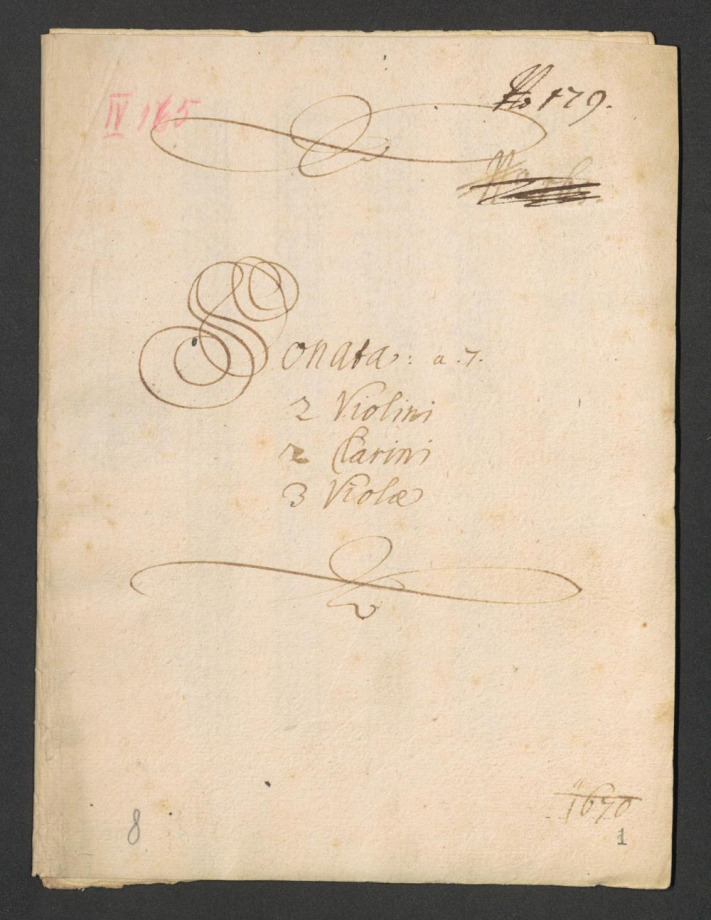 IV 165
No 179.
Sonata: a. 7.
2 Violini
2 Clarini
3 Violæ
1670
8
1